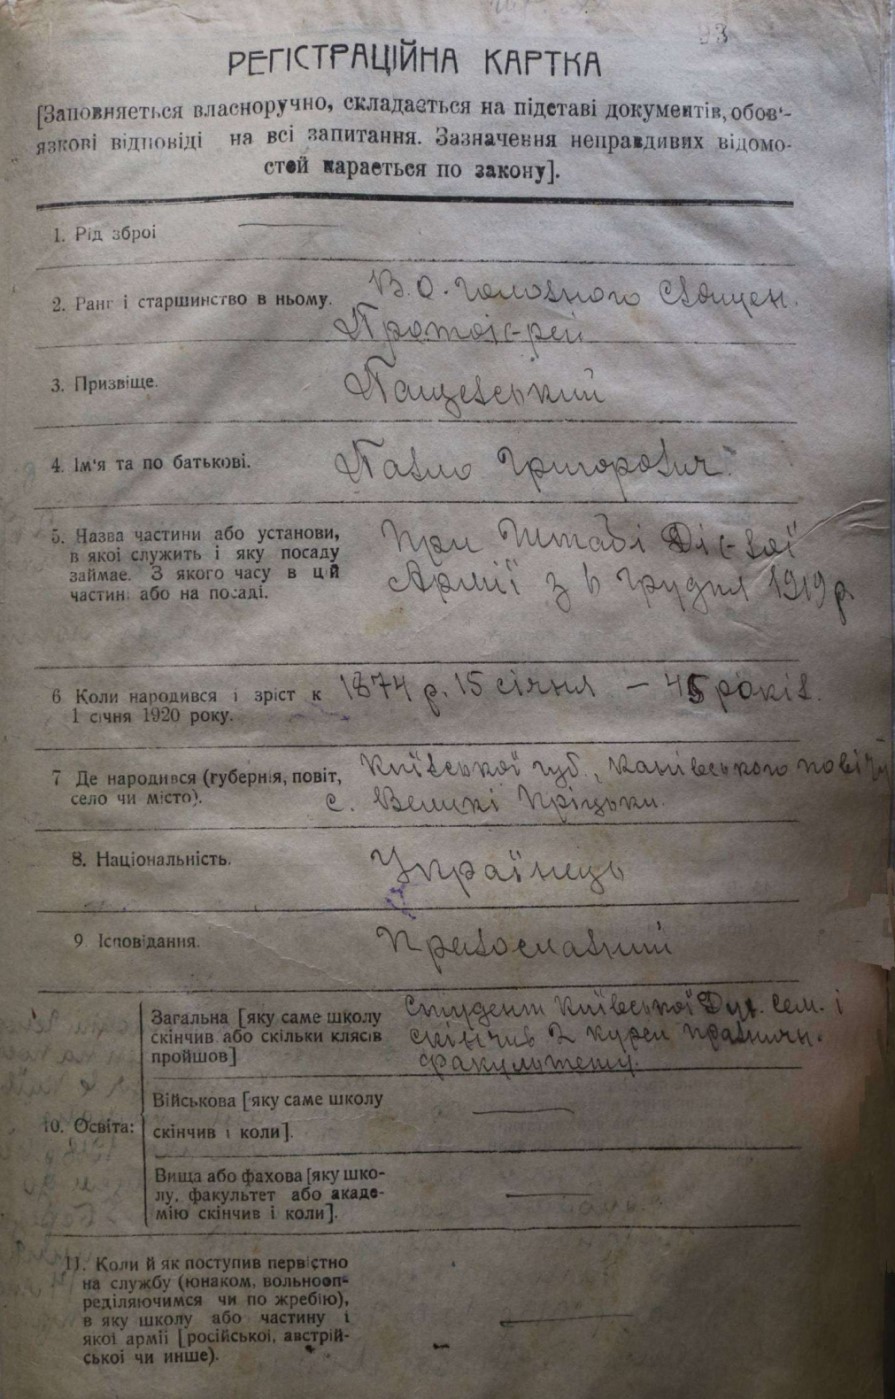 93
РЕГІСТРАЦІЙНА КАРТКА
[Заповняеться власноручно, складається на підставі документів, обов'-
язкові відповіді на всі запитання. Зазначення неправдивих відомо-
стей карається по закону].
1. Рід зброї
2. Ранг і старшинство в ньому. В.О. Головного Священ.
Протоієрей
3. Призвіще. Пащевський
4. Ім'я та по батькові. Павло Григорович
5. Назва частини або установи,
в якої служить і яку посаду
займае. З якого часу в цій
частині або на посаді.
При Штабі Дієвої
Армії з 6 Грудня 1919 р.
6 Коли народився і зріст к
1 січня 1920 року.
1874 р. 15 січня – 45 років.
7 Де народився (губернія, повіт,
село чи місто).
Київської губ., Канівського повіту
с. Великі Пріцьки.
8. Національність. Українець
9 Ісповідання. Православний
10. Освіта:
Загальна [яку саме школу
скінчив або скільки клясів
пройшов]
Студент Київської Дух. Сем. і
скінчив 2 курси правничн.
факультету.
Військова [яку саме школу
скінчив і коли].
Вища або фахова [яку шко-
лу, факультет або акаде-
мію скінчив і коли].
11. Коли й як поступив первістно
на службу (юнаком, вольнооп-
реділяючимся чи по жребію),
в яку школу або частину і
якої армії [російської, австрій-
ської чи инше).